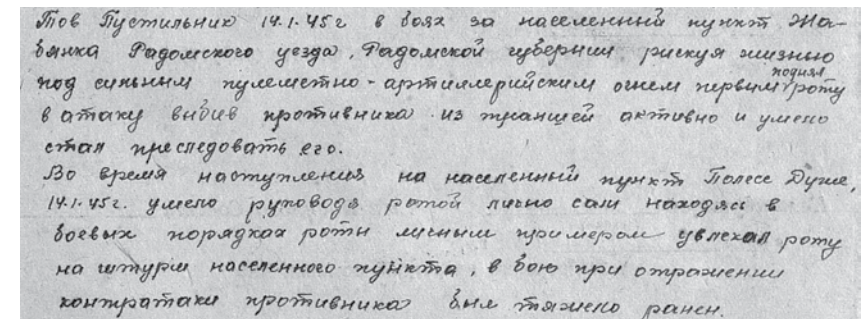 Тов Пустильник 14.1.45г в боях за населенный пункт Жа-
бянка Радомского уезда, Радомской губернии рискуя жизнью
под сильным пулеметно-артиллерийским огнем первым поднял роту
в атаку выбив противника из траншей активно и умело
стал преследовать его.
Во время наступления на населенный пункт Полесе Дуже,
14.1.45г. умело руководя ротой лично сам находясь в
боевых порядках роты личным примером увлекал роту
на штурм населенного пункта, в бою при отражении
контратаки противника был тяжело ранен.